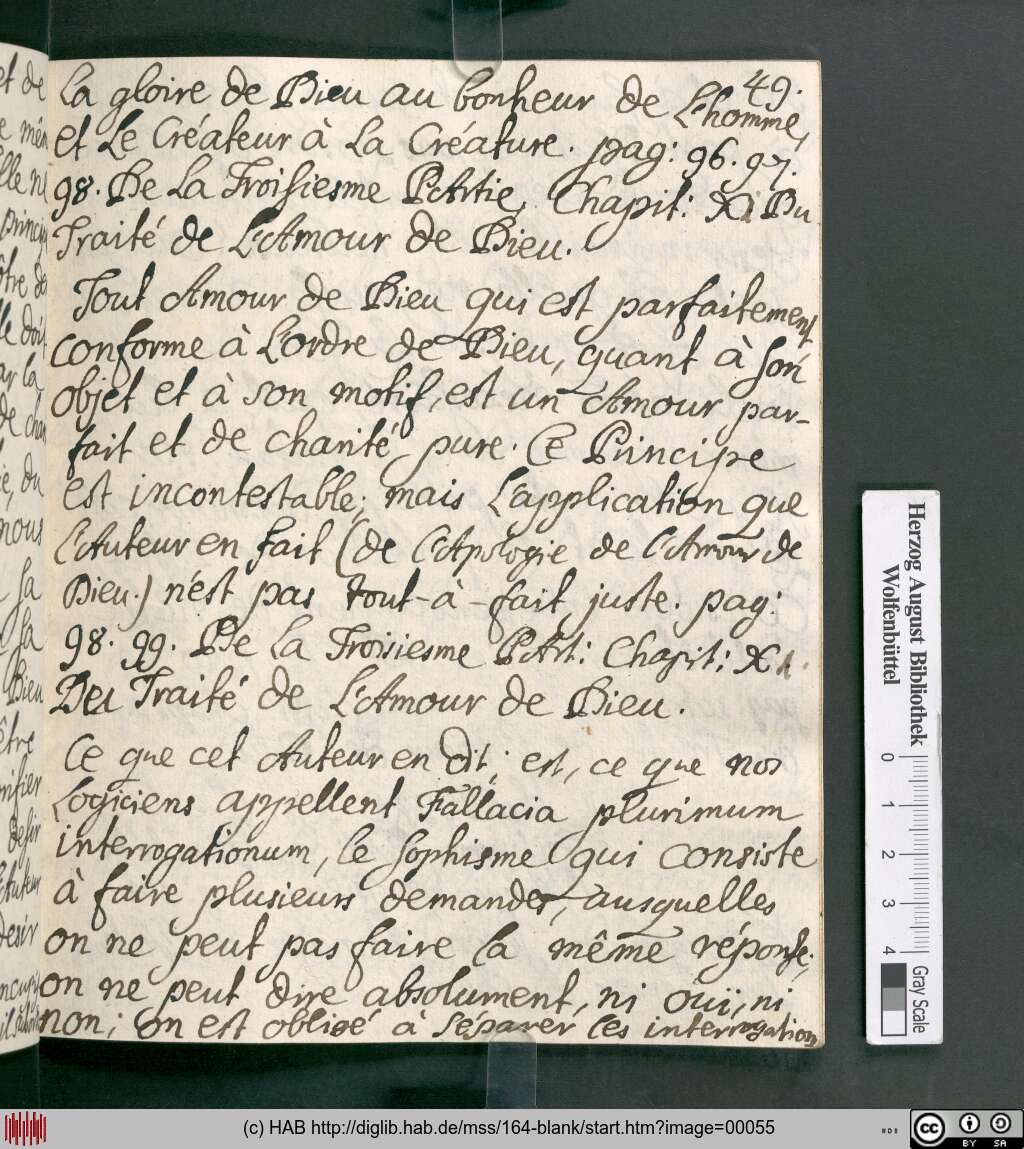 49.
la gloire de Dieu au bonheur de L'homme,
et Le Créateur à La Créature. pag: 96. 97.
98. De La Troisiesme PArtie, Chapit: XI Du
Traité de L'Amour de Dieu.
Tout Amour de Dieu qui est parfaitement
conforme à L'ordre de Dieu, quant à son
objet et à son motif, est un Amour par-
fait et de charité pure. Ce Principe
est incontestable; mais L'application que
L'Auteur en fait (de L'Apologie de L'Amour de
Dieu.) n'est pas tout-à-fait juste. pag:
98. 99. De La Troisiesme PArt: Chapit: XI.
Du Traité de L'Amour de Dieu.
Ce que cet Auteur en dit, est, ce que nos
Logiciens appellent Fallacia plurimum
interrogationum, le sophisme qui consiste
à faire plusieurs demandes, ausquelles
on ne peut pas faire la même réponse;
on ne peut dire absolument, ni oui, ni
non; on est obligé à séparer les interrogation
Herzog August Bibliothek
Wolfenbüttel
0 1 2 3 4
Gray Scale
(c) HAB http://diglib.hab.de/mss/164-blank/start.htm?image=00055
cc BY SA